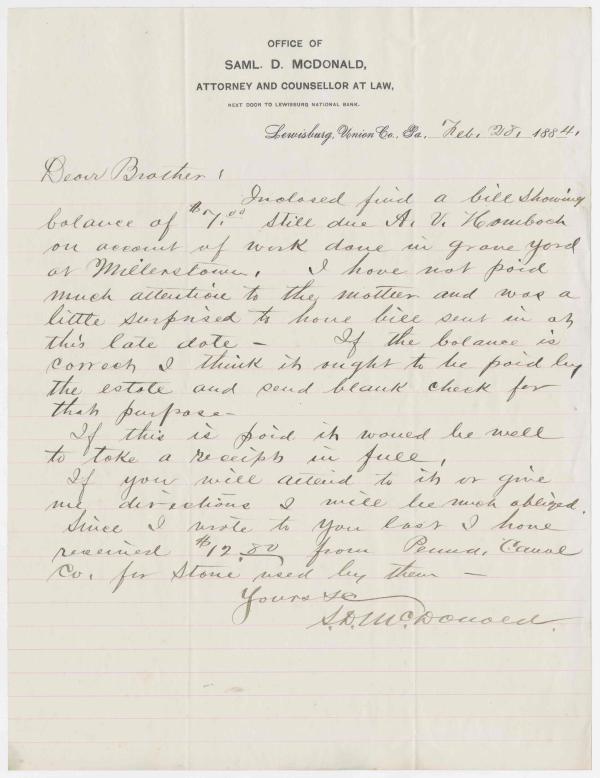 OFFICE OF
SAML. D. McDONALD,
ATTORNEY AND COUNSELLOR AT LAW,
NEXT DOOR TO LEWISBURG NATIONAL BANK.
Lewisburg, Union Co., Pa., Feb. 28, 1884.
Dear Brother,
Inclosed find a bill showing
balance of $7.00 still due A. V. Hombach
on account of work done in grave yard
at Millerstown. I have not paid
much attention to the matter and was a
little surprised to have bill sent in at
this late date – If the balance is
correct I think it ought to be paid by
the estate and send blank check for
that purpose –
If this is paid it would be well
to take a receipt in full,
If you will attend to it or give
me directions I will be much obliged.
Since I wrote to you last I have
received $12.80 from Penna. Canal
Co. for Stone used by them –
Yours &c
S.D. McDonald.